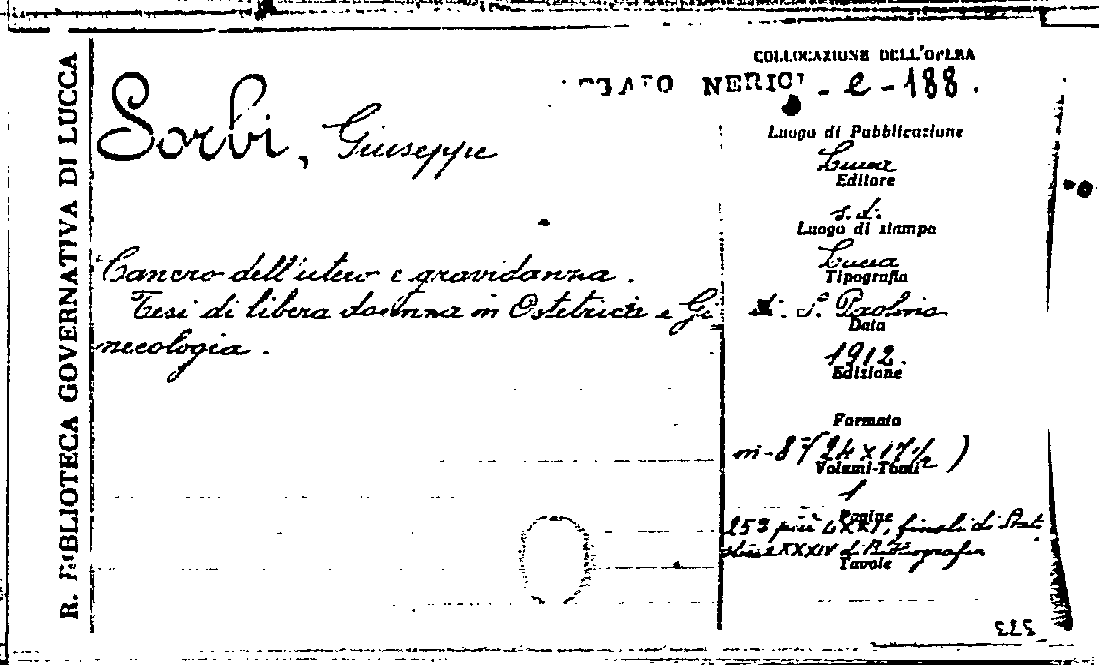 R. BIBLIOTECA GOVERNATIVA DI LUCCA
Sorbi, Giuseppe
Cancro dell'utero e gravidanza.
Tesi di libera docenza in Ostetricia e Gi
necologia.
COLLOCAZIONE DELL'OPERA
NERICI - e - 188.
Luogo di Pubblicazione
Lucca
Editore
s. d.
Luogo di stampa
Lucca
Tipografia
di S. Paolino
Data
1912.
Edizione
Formato
in-8° (24 x 17½)
Volumi-Tomi
1
Pagine
253 più LXXI, finali di Stat.
XXXIV di Bibliografia
Tavole